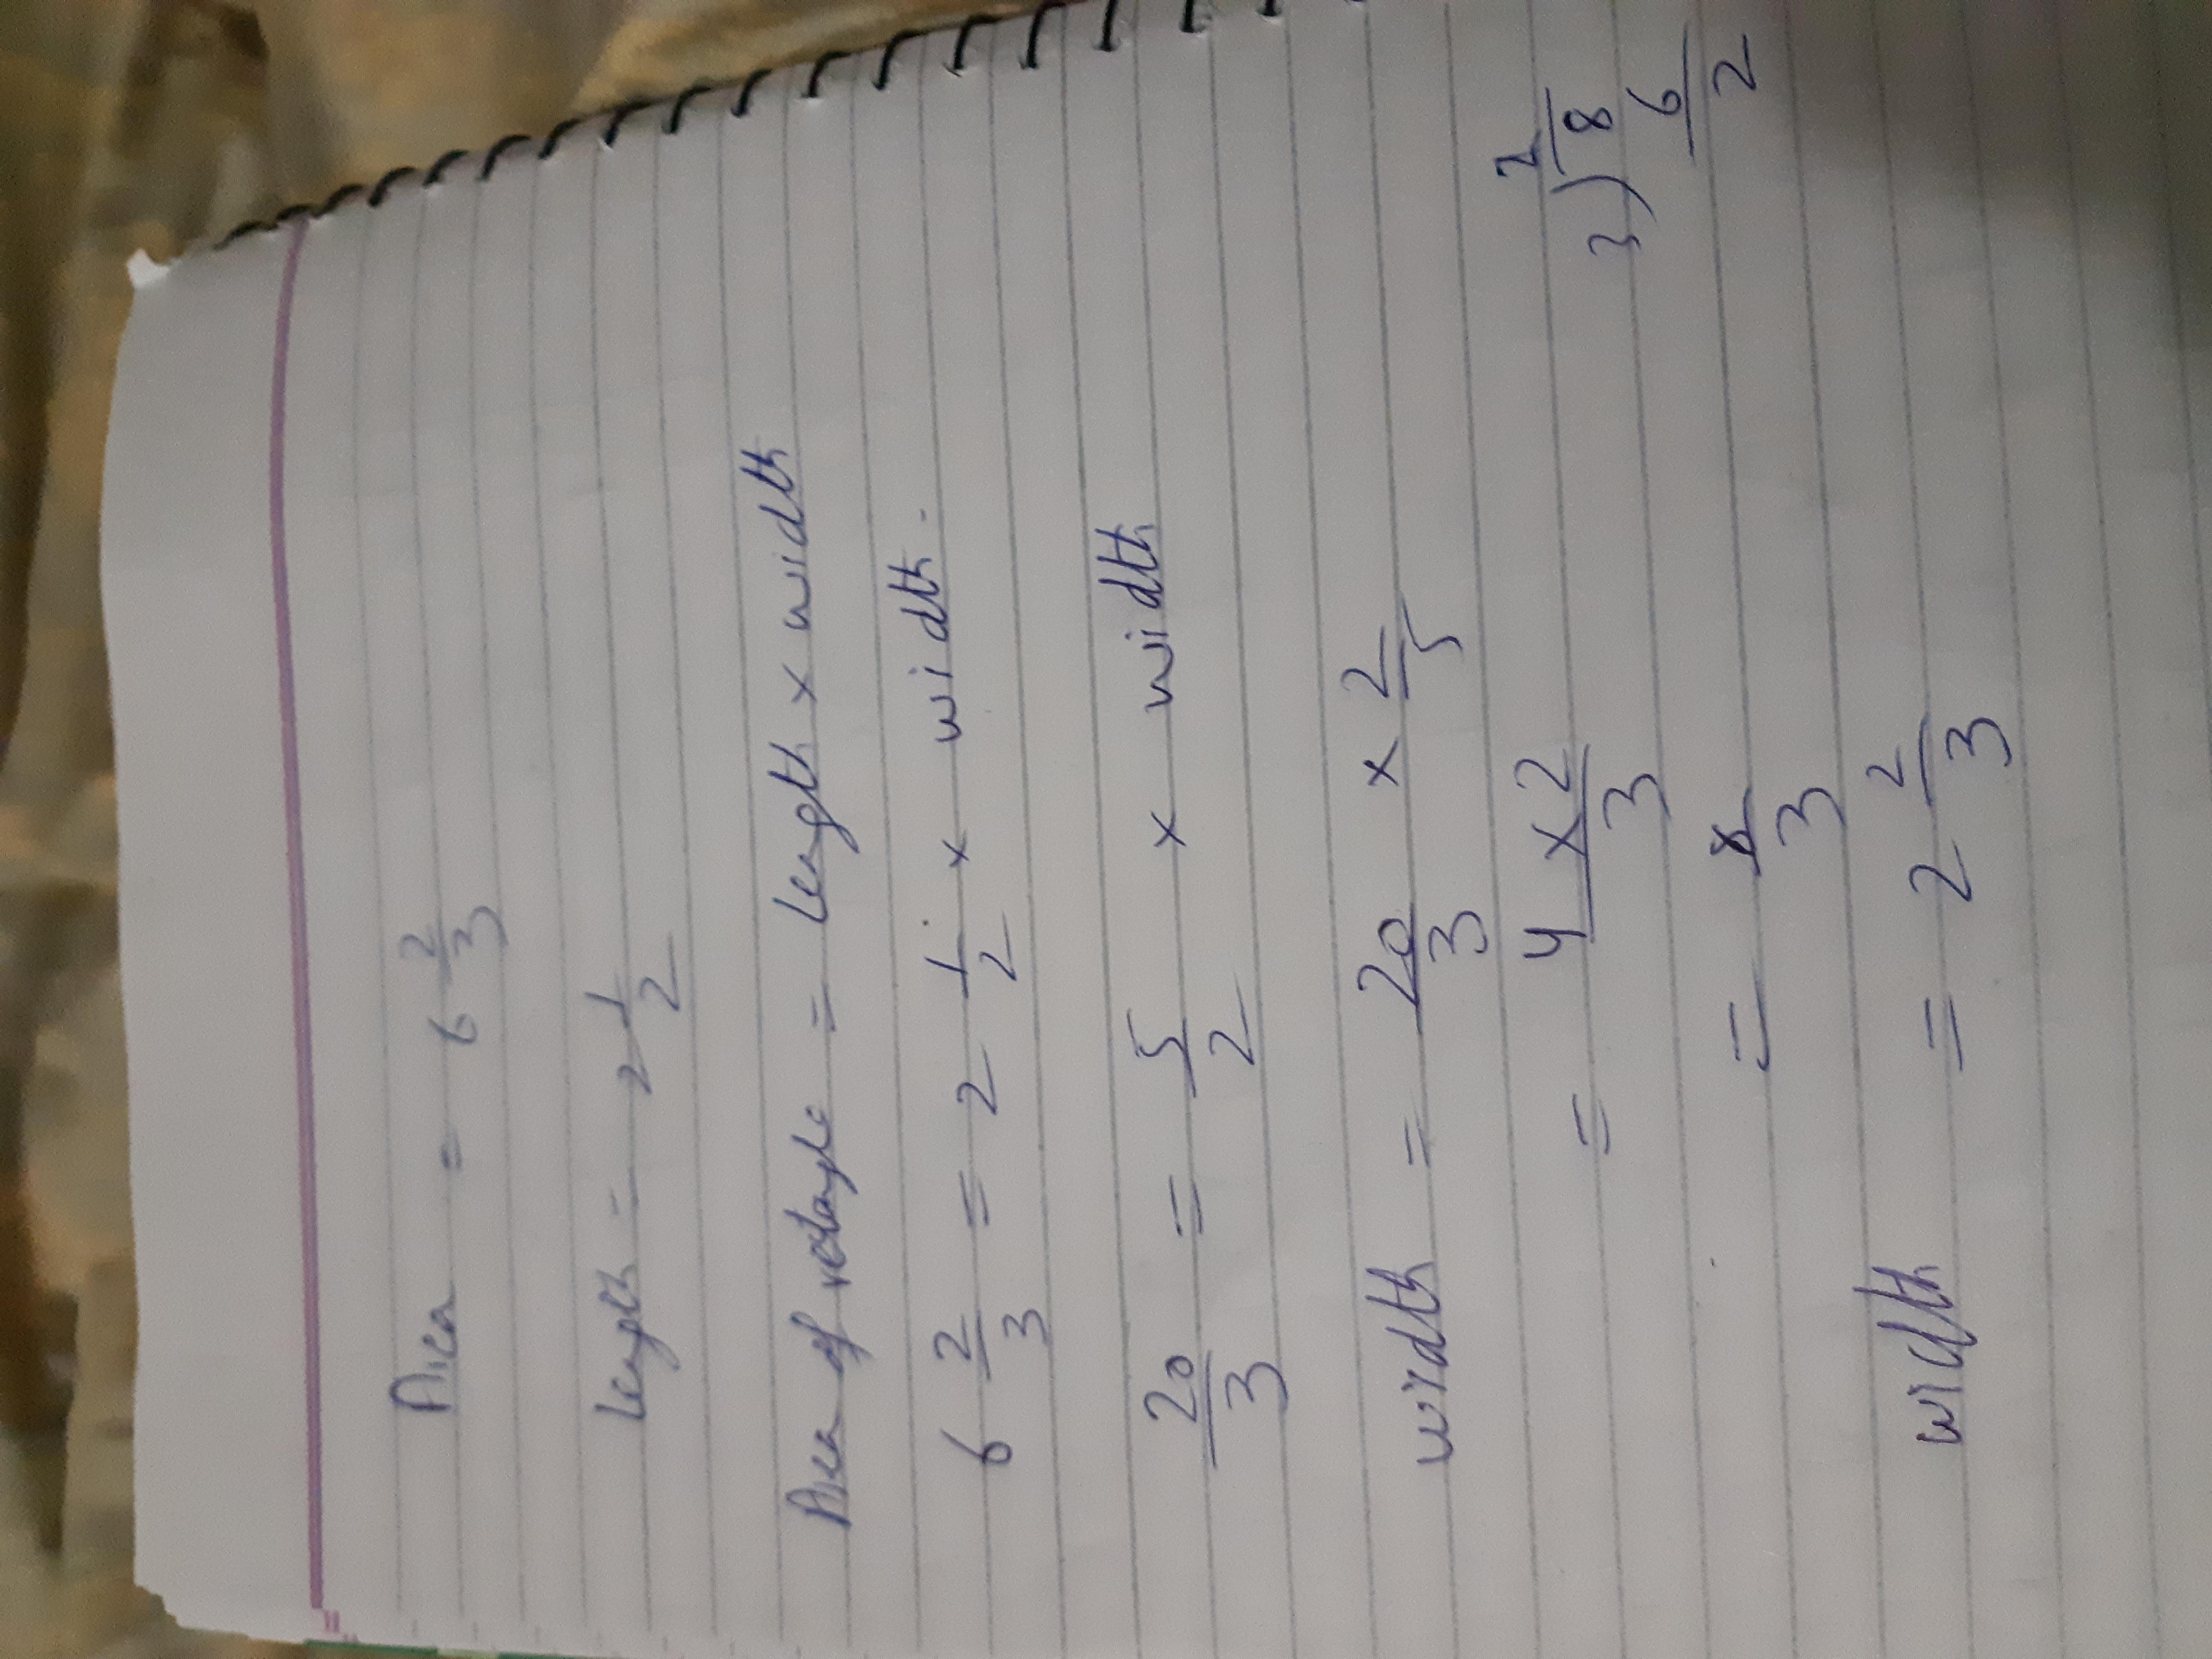 Area = 6 2/3
length = 2 1/2
Area of rectangle = length x width
6 2/3 = 2 1/2 x width.
20/3 = 5/2 x width
width = 20/3 x 2/5
= 4 x 2/3
= 8/3
2
3)8
6
2
width = 2 2/3